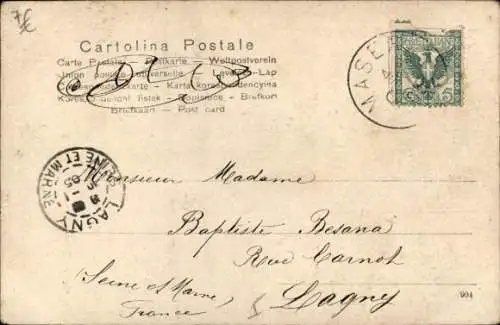 Cartolina Postale
Carte Postale - Postkarte - Weltpostverein
Union postale universelle - Levelező-Lap
Karta korespondencyjna
Korespondenční lístek - Dopisnice - Brefkort
Briefkaart - Post card
MASE
5
LAGNY
SEINE ET MARNE
05
Monsieur Madame
Baptiste Besana
Rue Carnot
Lagny
Seine et Marne
France
994